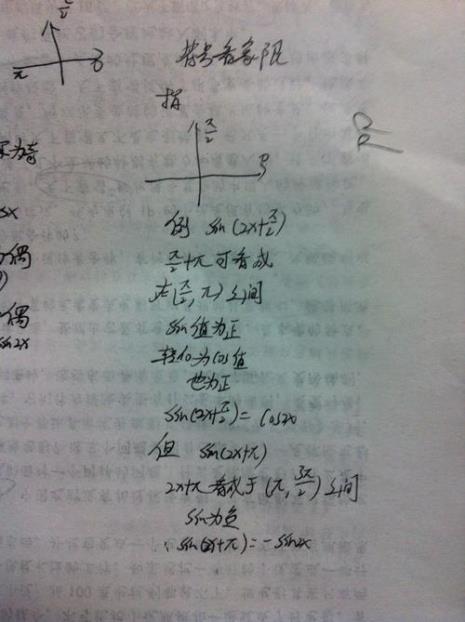 π/2
π
0
符号看象限
指
π/2
例 sin(2x+π/2)
π/2+π可看成
在(π/2,π)之间
sin值为正
转化为cos值
也为正
sin(2x+π/2)=cos2x
但 sin(2x+π)
2x+π看成于(π,3π/2)之间
sin为负
∴sin(2x+π)=-sin2x
为奇
sx
偶
偶
sin2x